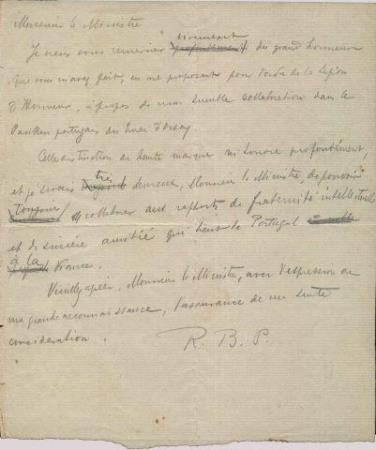 Monsieur le Ministre
vivement
Je viens vous remercier profondement du grand honneur
que vous m'avez fait, en me proposant pour l'ordre de la Legion
d'Honneur, à propos de mon humble collaboration dans le
Pavillon portugais du Quai d'Orsay.
Cette distinction de haute marque m'honore profondément,
et je serais très heureux, Monsieur le Ministre, de pouvoir
toujours collaborer aux rapports de fraternité intellectuelle
et de sincère amitié qui lient le Portugal
à la France.
Veuillez agréer, Monsieur le Ministre, avec l'expression de
ma grande reconnaissance, l'assurance de ma haute
consideration.
R. B. P.